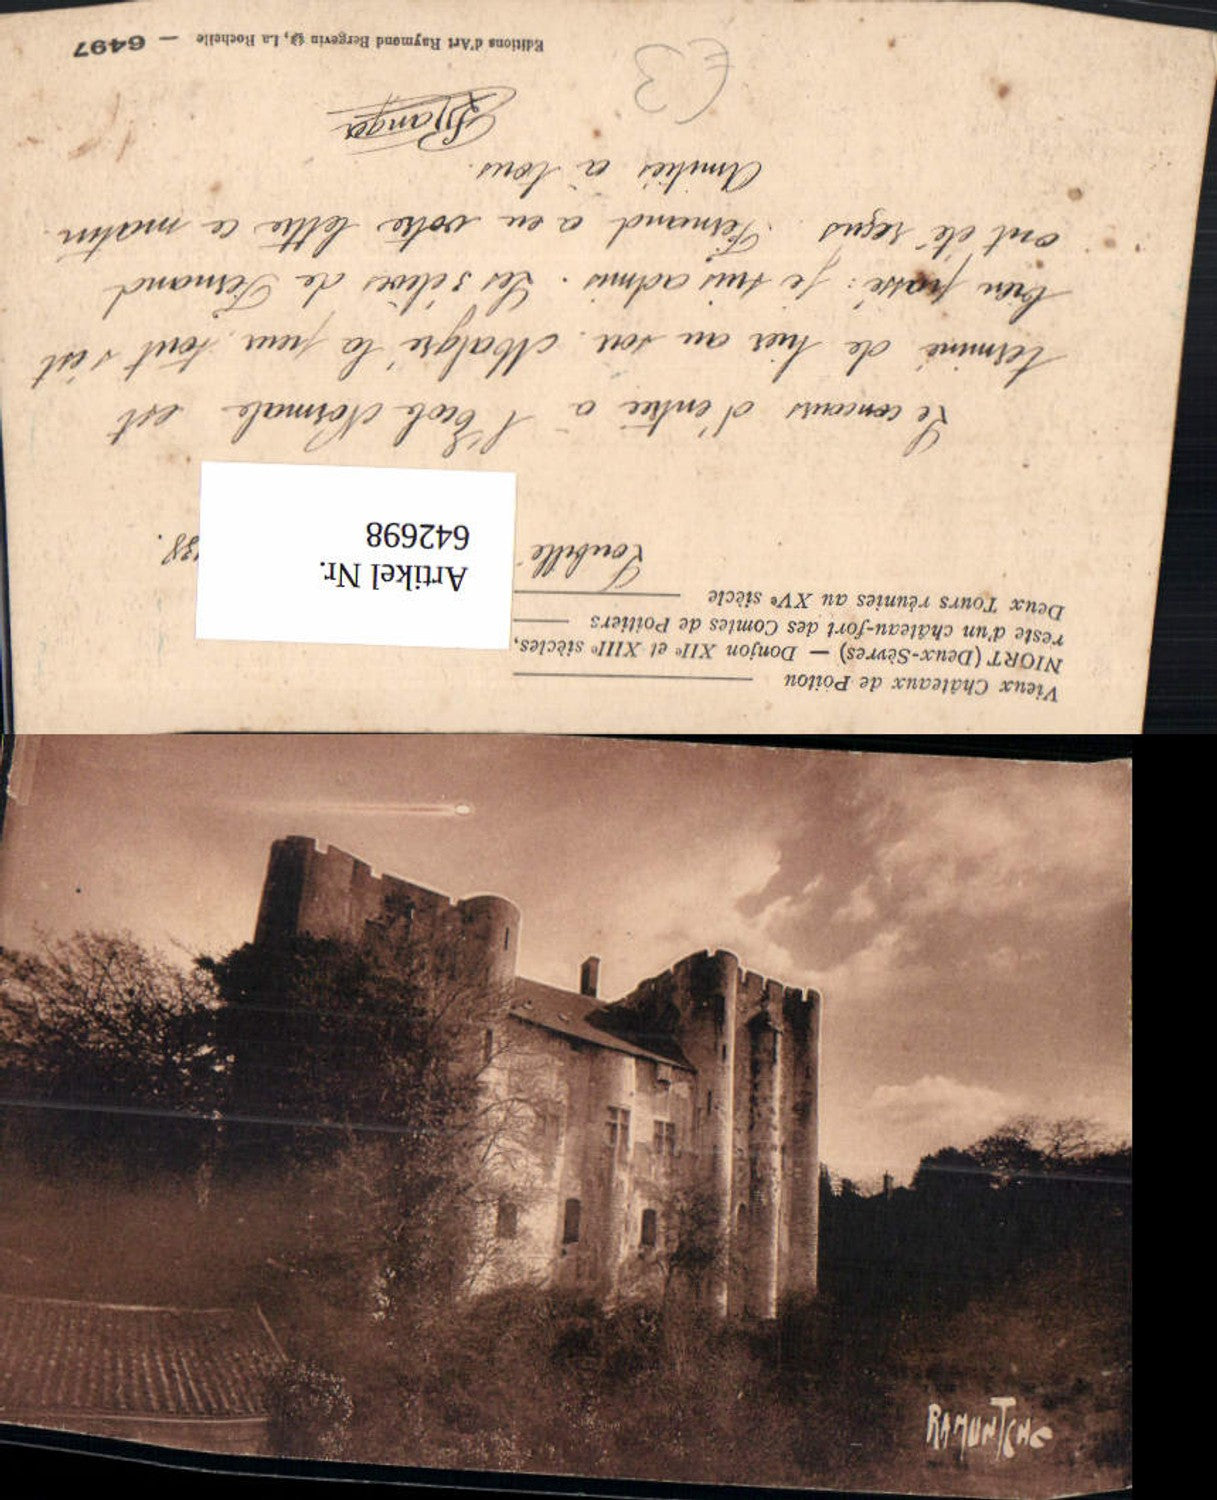 Vieux Châteaux de Poitou
NIORT (Deux-Sèvres) — Donjon XIIe et XIIIe siècles,
reste d'un château-fort des Comtes de Poitiers
Deux Tours réunies au XVe siècle
Loubillé
38.
Artikel Nr.
642698
Le concours d'entrée à l'Ecole Normale est
terminé de hier au soir. Malgré la peur, tout s'est
bien passé : je suis admis. Les 3 élèves de Fernand
ont été reçus. Fernand a eu votre lettre ce matin.
Amitiés à tous.
€3
Editions d'Art Raymond Bergevin, La Rochelle — 6497
RAMUNTCHO